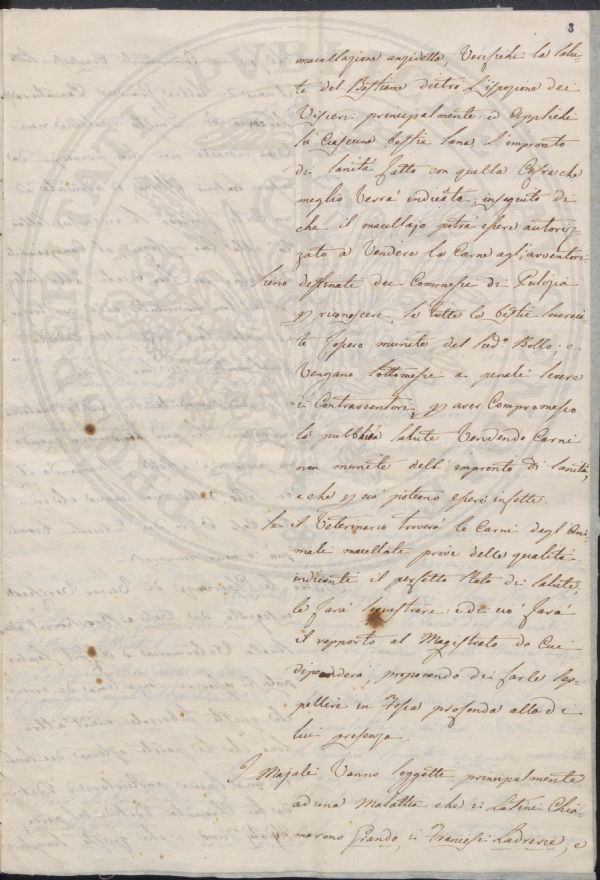 3
macellazione anzidetta, Verifichi la Salu-
te del Bestiame dietro L'ispezione dei
Visceri principalmente: ed Applichi
su Ciascuna bestia Sana, l'impronto
di Sanità fatto con quella Cifra che
meglio Verrà indicata, inseguito di
che il macellajo potrà essere autoriz-
zato a Vendere la Carne agli avventori.
Sieno destinati dei Commessi di Pulizia
p riconoscere, se tutte le bestie macella-
te sono munite del Sud.º Bollo; e
Vengano Sottomessi a penali Severe
i Contravventori, p aver Compromesso
la pubblica Salute Vendendo Carni
non munite dell'impronto di Sanità,
e che p ciò poteano essere infette.
Se il Veterinario troverà le Carni degl'Ani-
mali macellati prive delle qualità
indicanti il perfetto Stato di Salute,
le farà Sequestrare: e di ciò farà
il rapporto al Magistrato da Cui
dipenderà, proponendo di farle Sep-
pellire in Fossa profonda alla di
lui presenza.
I Majali Vanno Soggetti principalmente
ad una Malattia che i Latini Chia-
marono Grando, i Francesi Ladrerie, e